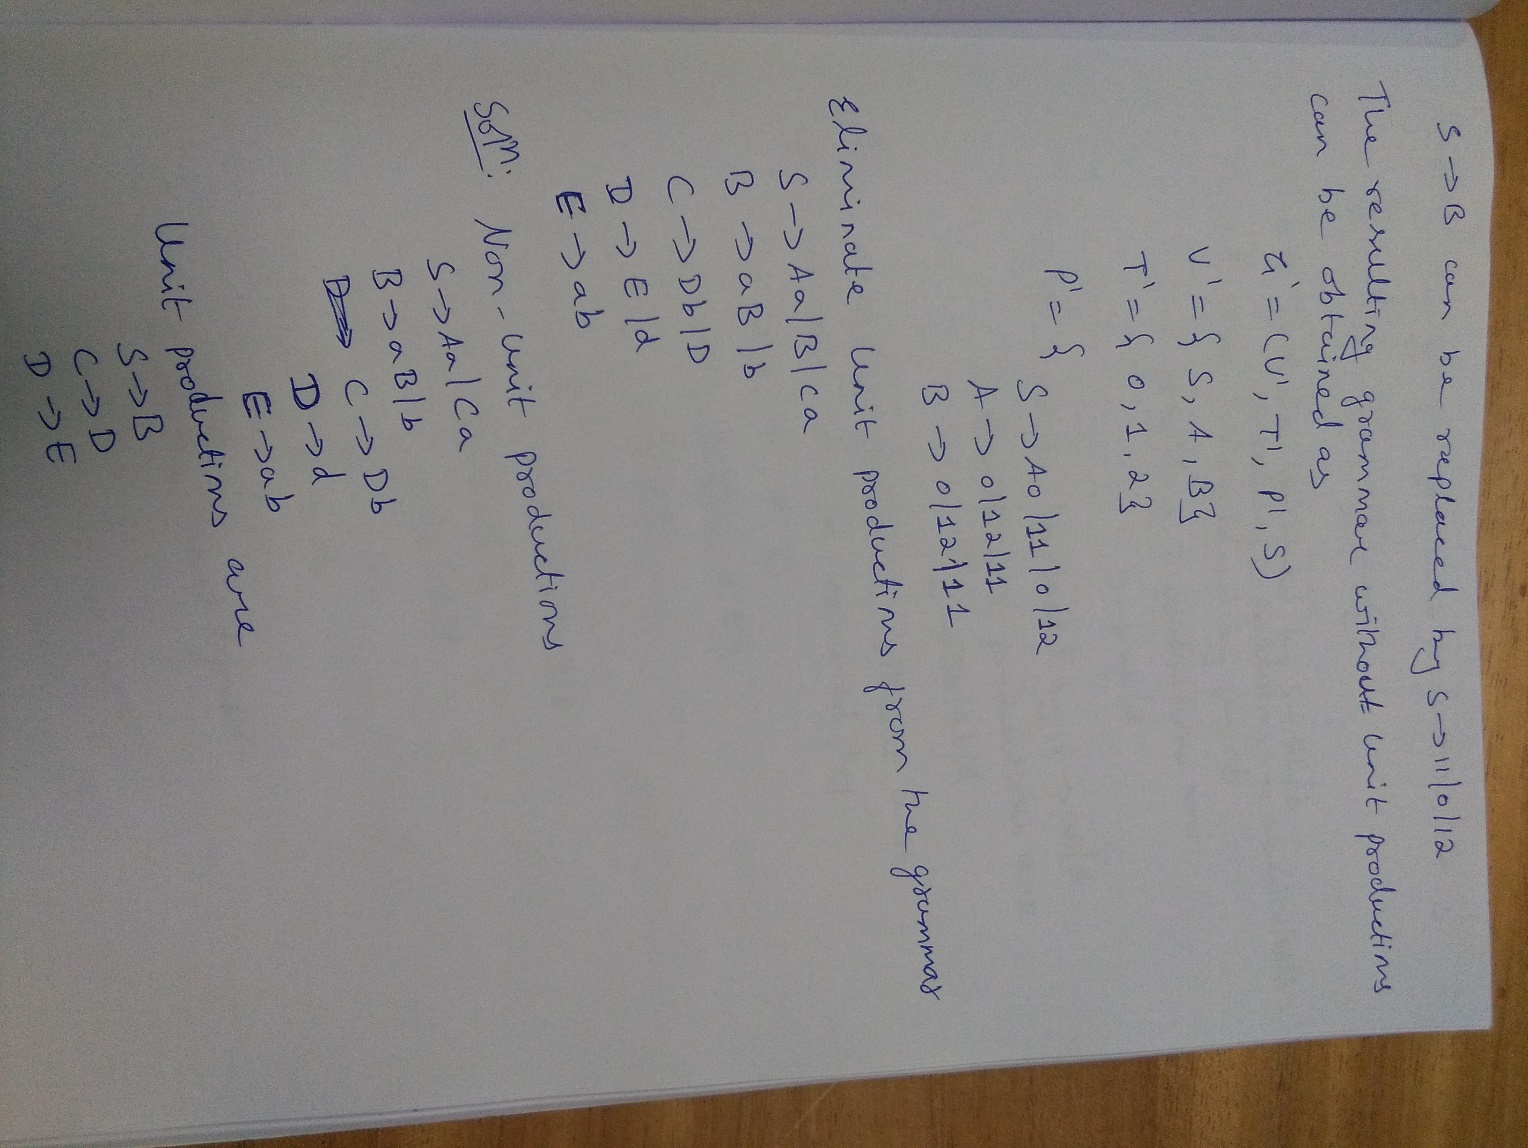 S → B can be replaced by S → 11/0/12
The resulting grammar without unit productions
can be obtained as
G' = (V', T', P', S)
V' = { S, A, B}
T' = { 0, 1, 2}
P' = {
S → A0/11/0/12
A → 0/12/11
B → 0/12/11
Eliminate Unit productions from the grammar
S → Aa/B/Ca
B → aB/b
C → Db/D
D → E/d
E → ab
Soln: Non-Unit productions
S → Aa/Ca
B → aB/b
C → Db
D → d
E → ab
Unit productions are
S → B
C → D
D → E